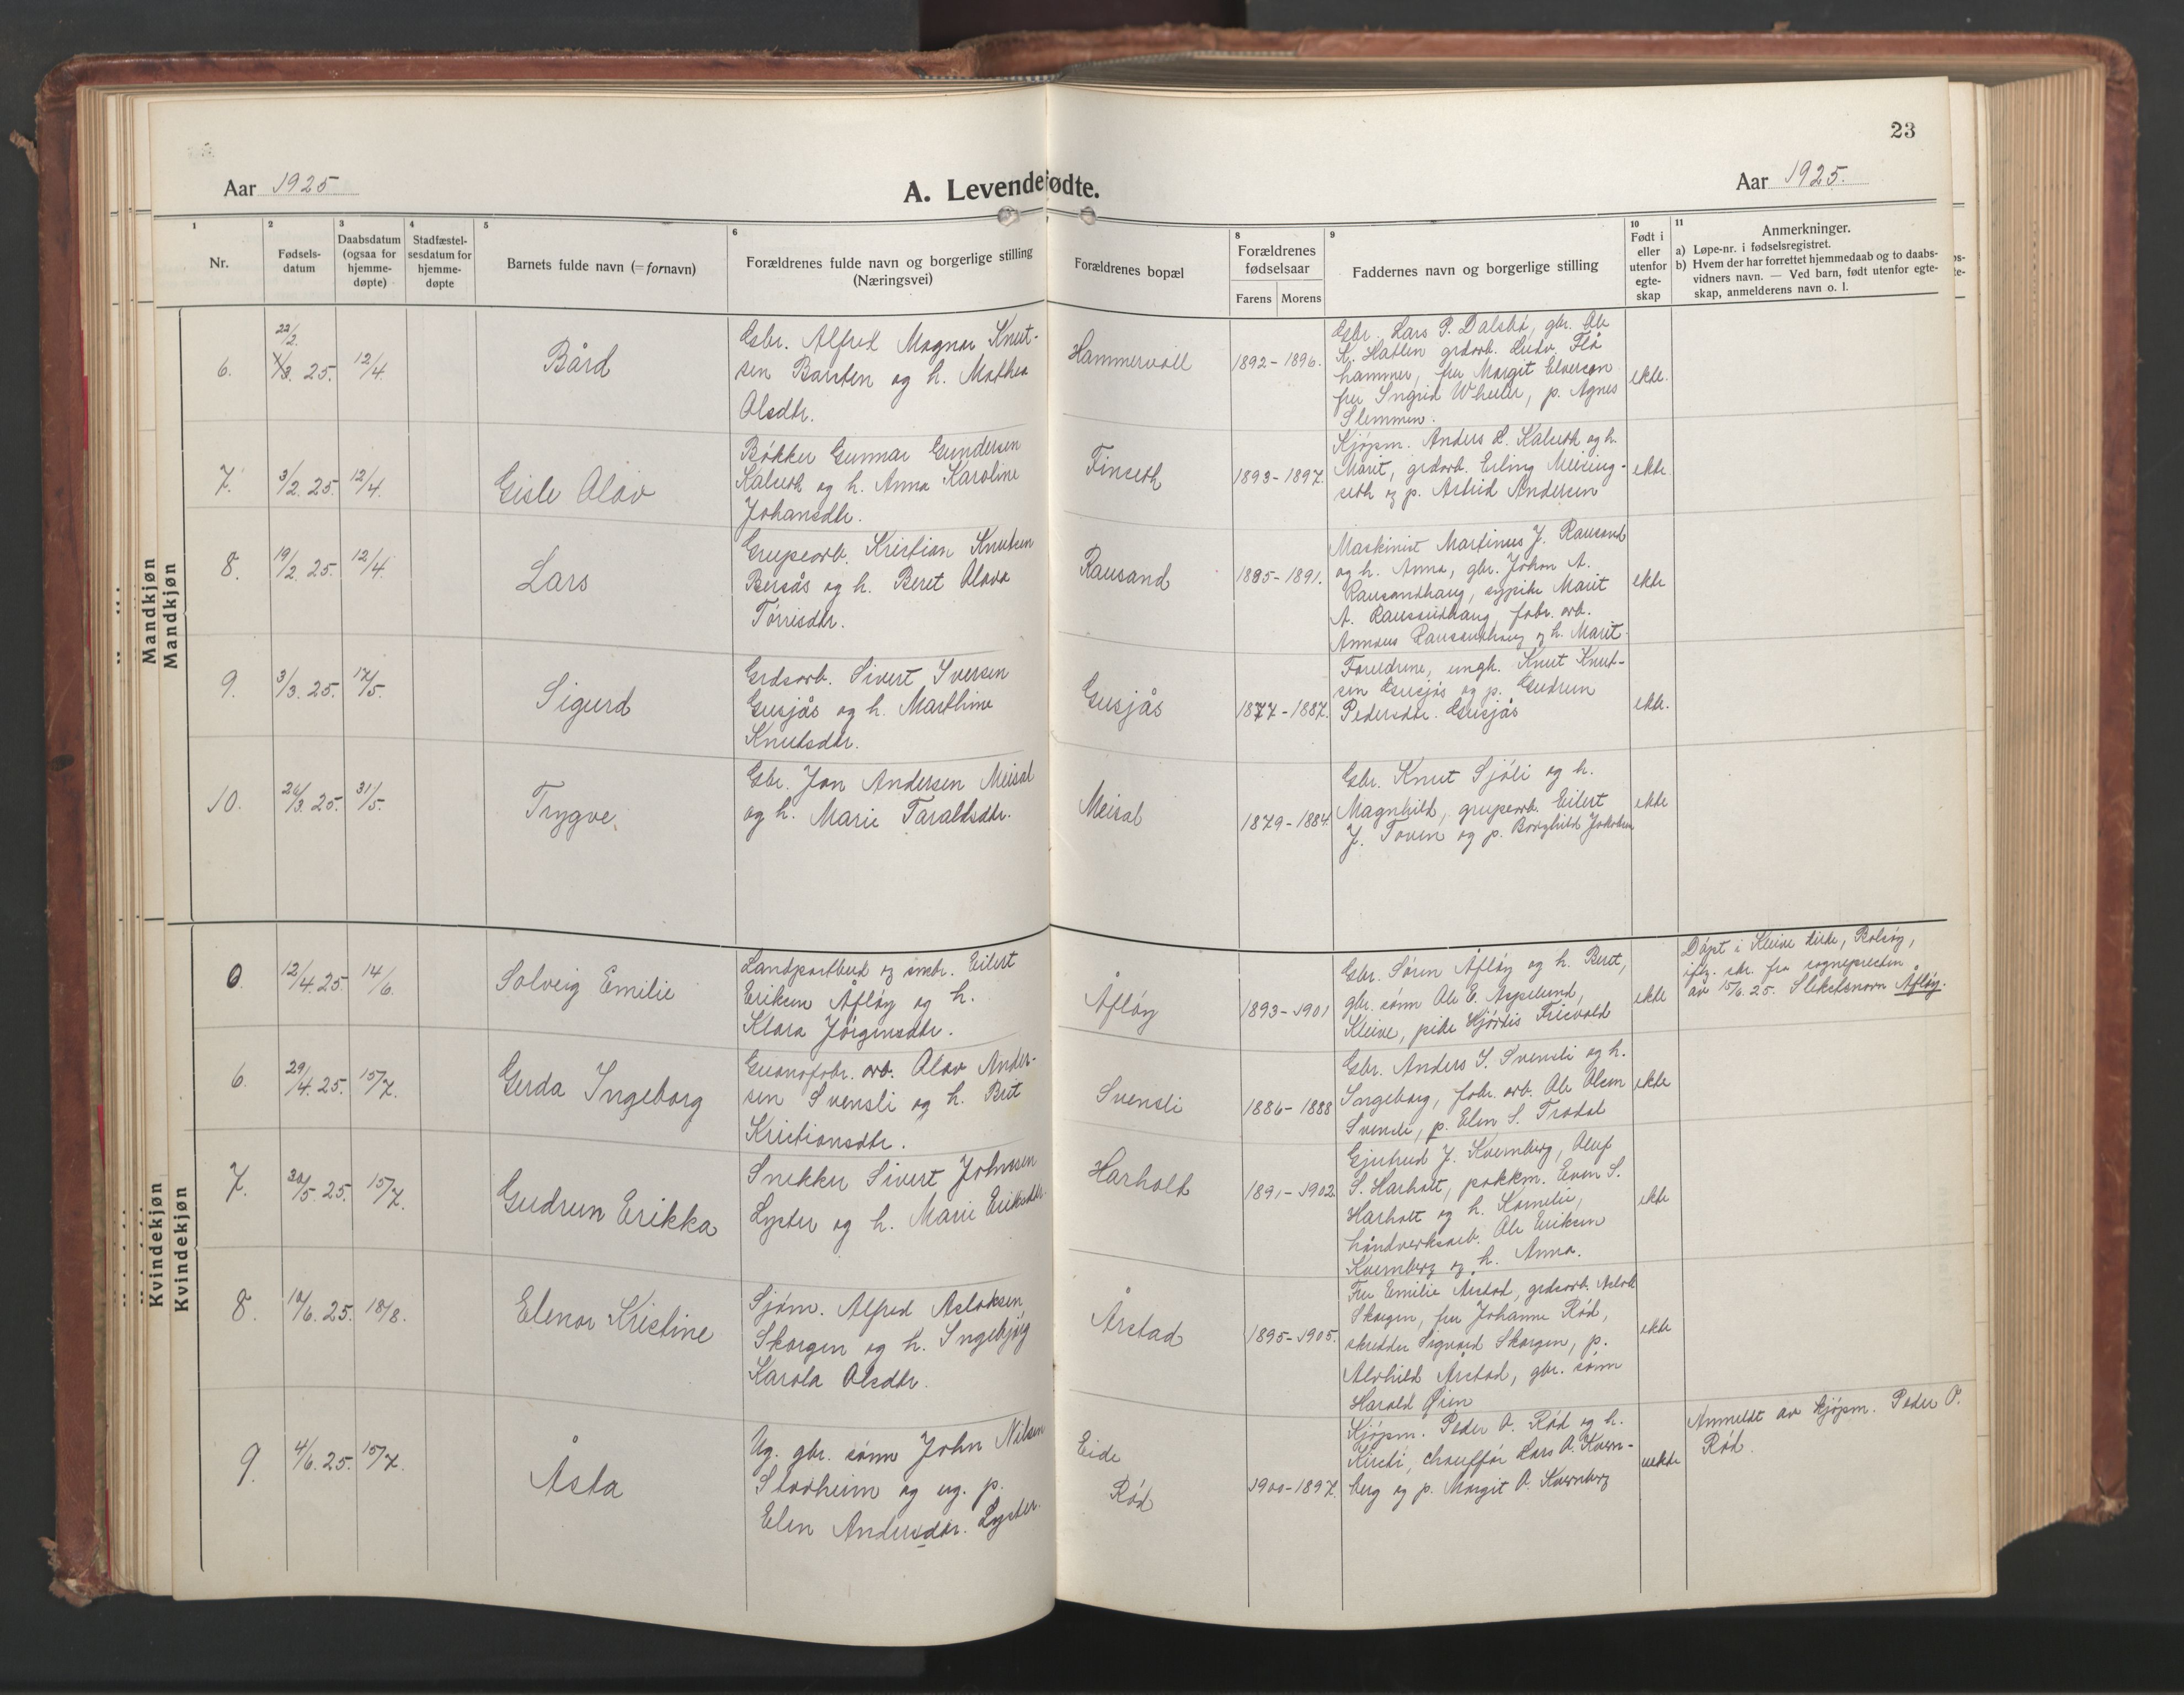 23
Aar 1925
A. Levendefødte.
Aar 1925.
1
Nr.
2
Fødsels-
datum
3
Daabsdatum
(ogsaa for
hjemme-
døpte)
4
Stadfæstel-
sesdatum for
hjemme-
døpte
5
Barnets fulde navn (= fornavn)
6
Forældrenes fulde navn og borgerlige stilling
(Næringsvei)
Forældrenes bopæl
8
Forældrenes
fødselsaar
Farens Morens
9
Faddernes navn og borgerlige stilling
10
Født i
eller
utenfor
egte-
skap
11
Anmerkninger.
a) Løpe-nr. i fødselsregistret.
b) Hvem der har forrettet hjemmedaab og to daabs-
vidners navn. — Ved barn, født utenfor egte-
skap, anmelderens navn o. l.
Mandkjøn
Mandkjøn
6.
22/2.
25.
12/4.
Bård
Gbr. Alfred Magnar Knut-
sen Barsten og h. Mathea
Olsdtr.
Hammervoll
1892-1896.
Gbr. Lars P. Dalsbø, gbr. Ole
K. Hatlen grdarb. Ludv. Flå
hammer, fru Margit Elverson
fru Ingrid Wheeler, p. Agnes
Slemmen.
ekte.
7.
3/2. 25.
12/4.
Gisle Olav
Bøkker Gunnar Gundersen
Kalseth og h. Anna Karoline
Johansdtr.
Finseth
1893-1897.
Kjøpm. Anders H. Kalseth og h.
Marit, grdarb. Erling Meising-
seth og p. Astrid Andersen
ekte.
8.
19/2. 25.
12/4.
Lars
Grupearb. Kristian Knutsen
Bersås og h. Beret Olava
Tørrisdtr.
Rausand
1885-1891.
Maskinist Martinus J. Rausand
og h. Anna, gbr. Johan A.
Rausandhaug, sypike Marit
A. Rausandhaug, fabr. arb.
Annæus Rausandhaug og h. Marit.
ekte
9.
3/3. 25.
17/5.
Sigurd
Grdsarb. Sivert Iversen
Gusjås og h. Marthine
Knutsdtr.
Gusjås
1877-1887.
Foreldrene, ungk. Knut Knut-
sen Gusjås og p. Gudrun
Pedersdtr. Gusjås
ekte.
10.
26/3. 25.
31/5.
Trygve.
Gbr. Jon Andersen Meisal
og h. Marie Taraldsdtr.
Meisal
1879-1884.
Gbr. Knut Sjøli og h.
Magnhild, grupearb. Eilert
J. Toven og p. Borghild Jakobsen
ekte
Kvindekjøn
Kvindekjøn
0.
12/4. 25.
14/6.
Solveig Emilie
Landpostbud og smbr. Eilert
Eriksen Åfløy og h.
Klara Jørginsdtr.
Åfløy
1893-1901
Gbr. Søren Åfløy og h. Beret,
gbr. sønn Ole E. Aspelund,
Kleive, pike Hjørdis Frisvold
ekte
Døpt i Kleive kirke, Bolsøy,
iflg. skr. fra sognepresten
av 15/6. 25. Slektsnavn Åfløy.
6.
29/4. 25.
15/7.
Gerda Ingeborg
Guanofabr. arb. Olav Ander-
sen Svensli og h. Brit
Kristiansdtr.
Svensli
1886-1888
Gbr. Anders I. Svensli og h.
Ingeborg, fabr. arb. Ole Olsen
Svensli, p. Elen S. Trodal
ekte
7.
30/5. 25.
15/7.
Gudrun Erikka
Snekker Sivert Johnsen
Lyster og h. Marie Eriksdtr.
Harholt
1891-1902
Gjertrud J. Kvernberg, Oluf
S. Harholt, pakkm. Even S.
Harholt og h. Kornelie,
håndverksarb. Ole Eriksen
Kvernberg og h. Anna.
ekte
8.
10/6. 25.
18/8.
Elenor Kristine
Sjøm. Alfred Aslaksen
Skorgen og h. Ingebjørg
Karola Olsdtr.
Årstad
1895-1905.
Fru Emilie Årstad, grdsarb. Aslak
Skorgen, fru Johanne Rød,
skredder Sigvard Skorgen, p.
Alvhild Årstad, gbr. sønn
Harald Øien
ekte
9.
4/6. 25.
15/7.
Åsta
Ug. gbr. sønn John Nilsen
Storheim og ug. p.
Elen Andersdtr. Lyster.
Eide
Rød
1900-1897.
Kjøpm. Peder O. Rød og h.
Kirsti, chauffør Lars O. Kvern-
berg og p. Margit O. Kvernberg
uekte
Anmeldt av kjøpm. Peder O.
Rød.